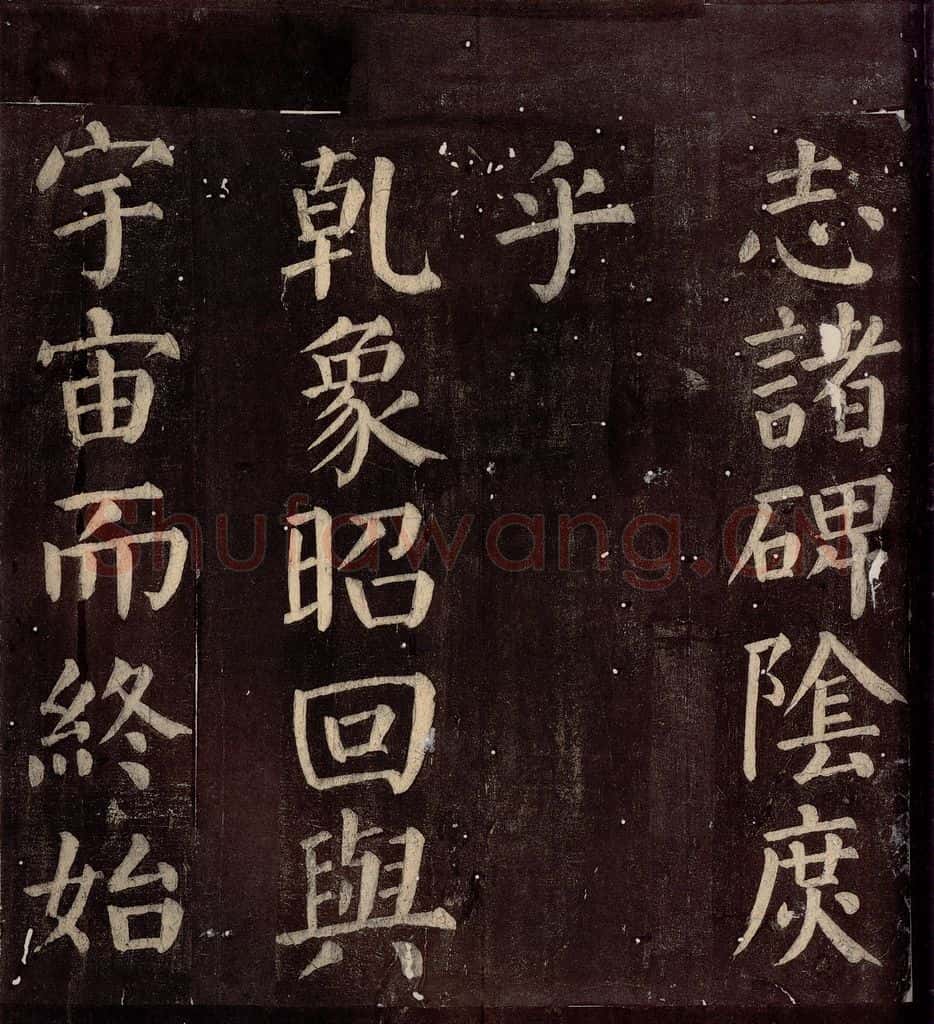 志諸碑陰庻
乎
乹象昭回與
宇宙而終始
Shufawang.CN